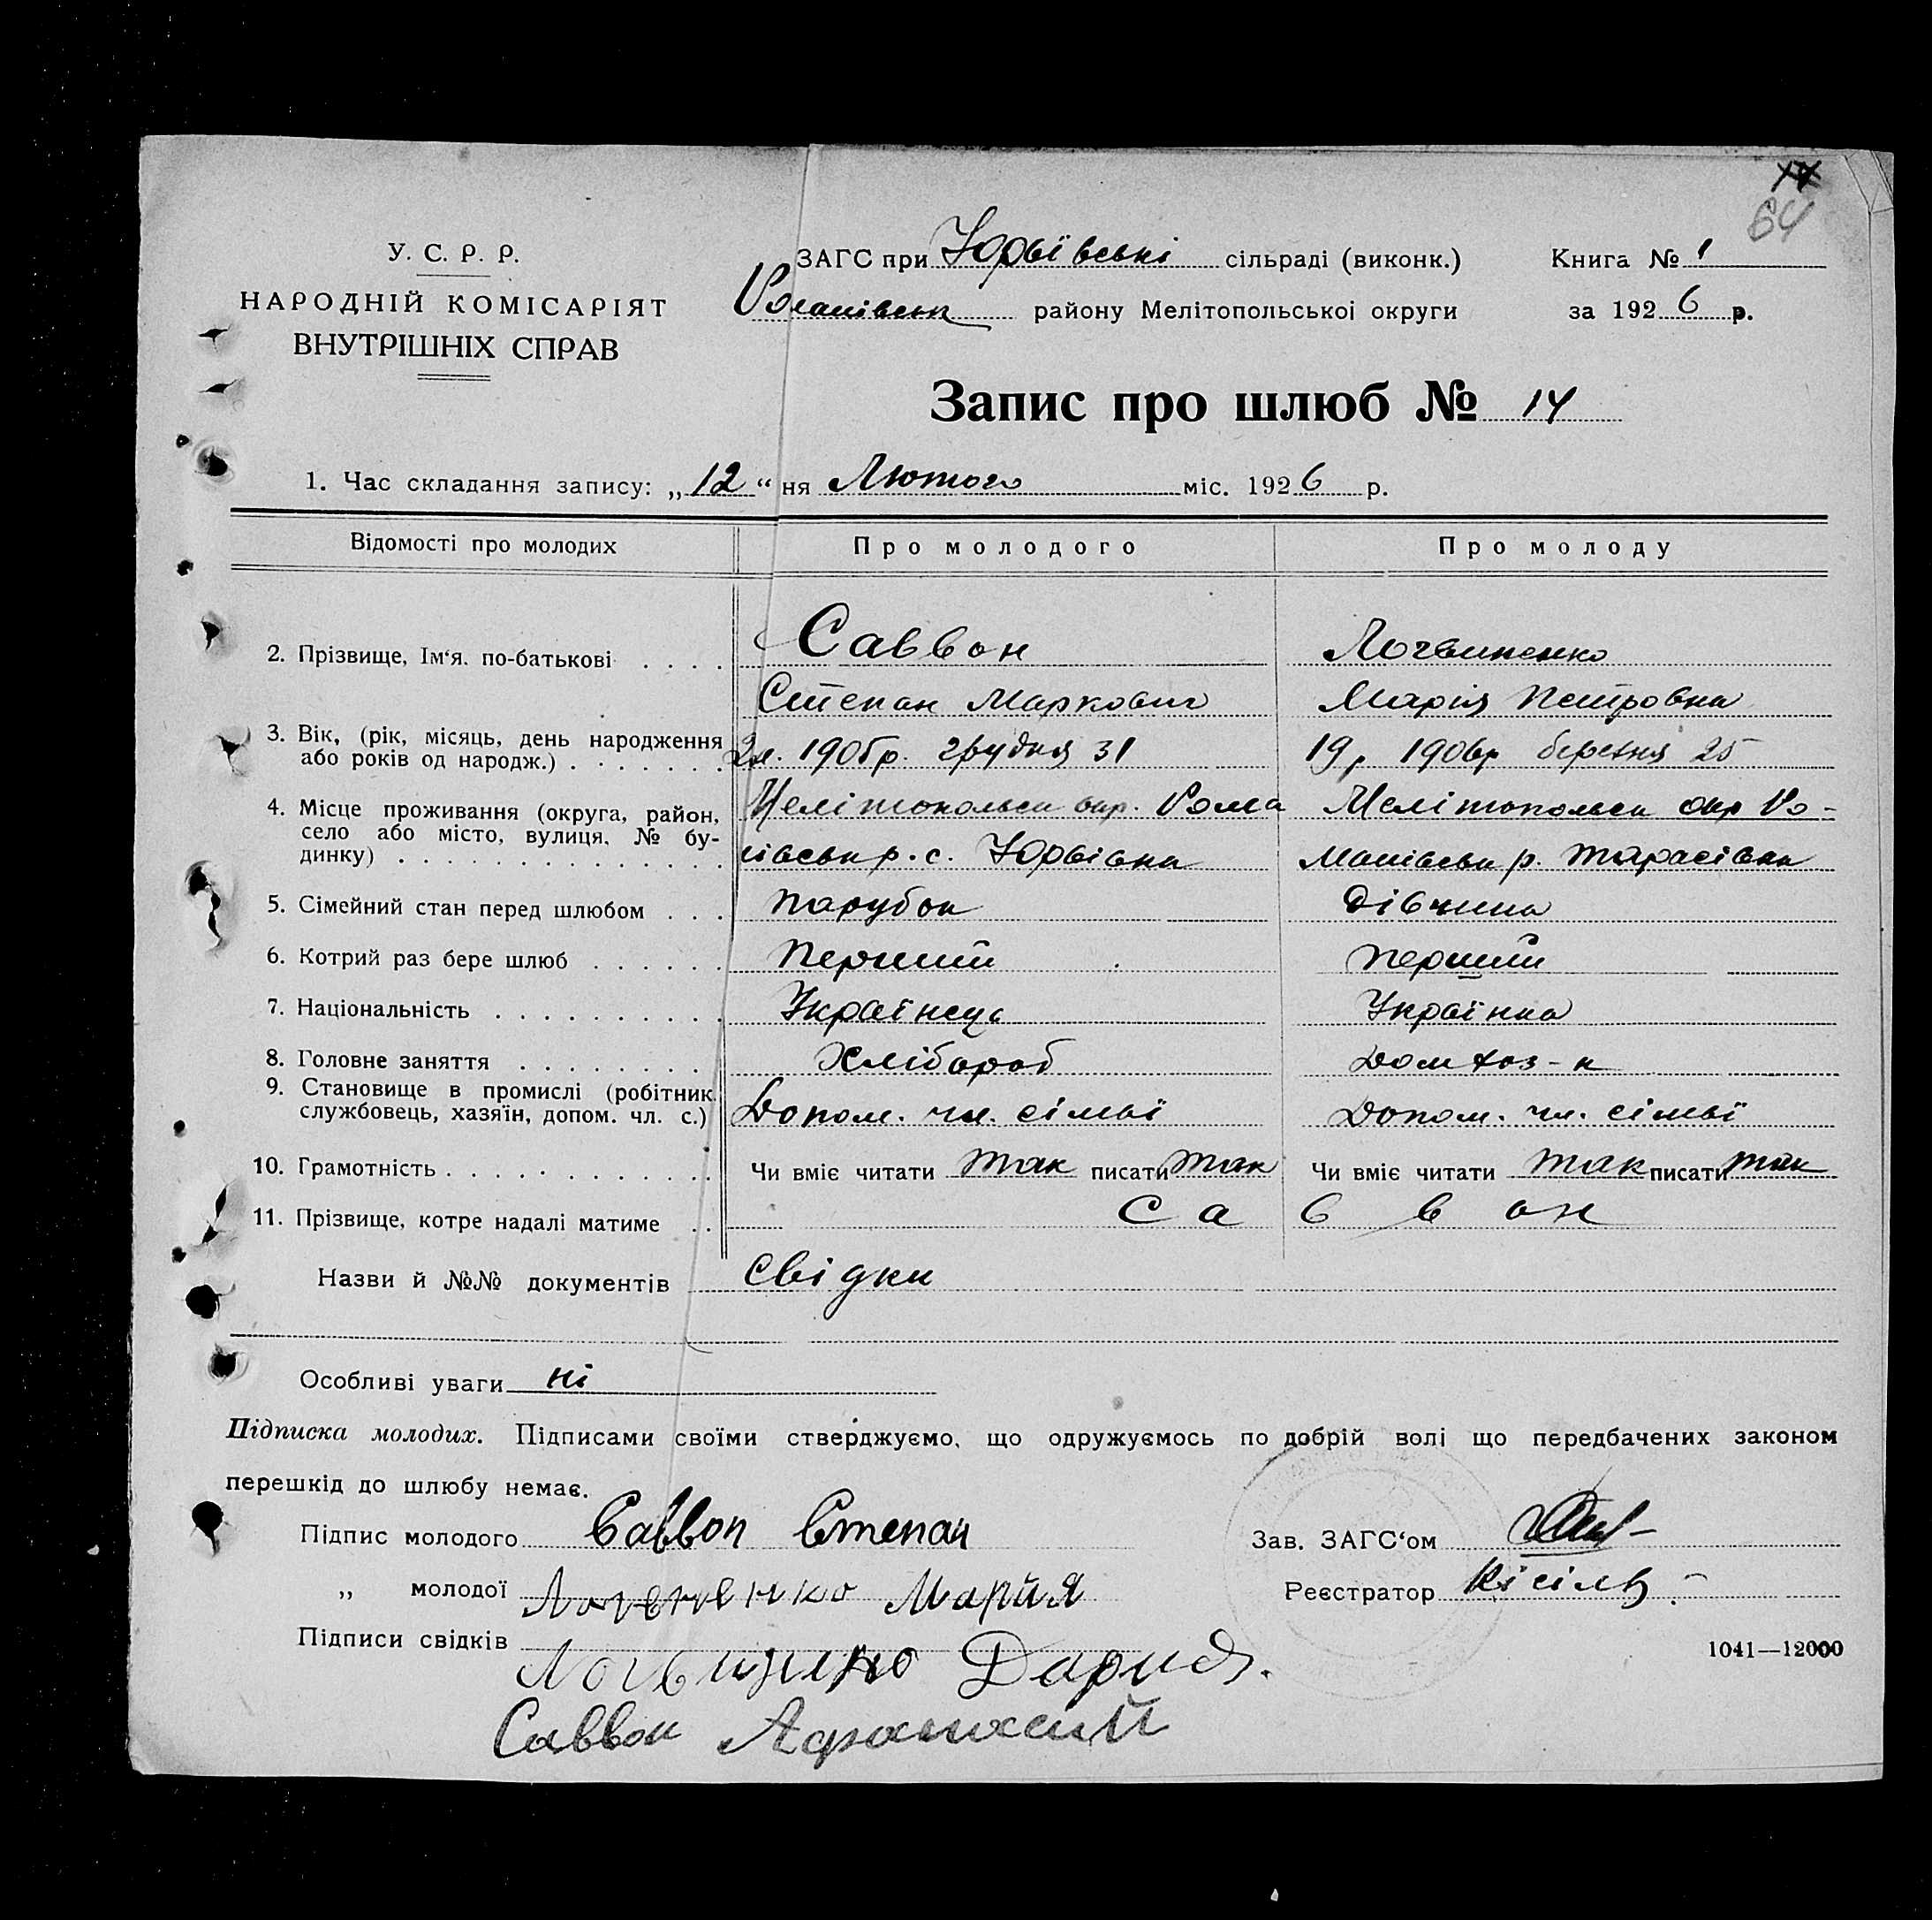 64
У. С. Р. Р.
НАРОДНІЙ КОМІСАРІЯТ
ВНУТРІШНІХ СПРАВ
ЗАГС при Юрьївські сільраді (виконк.)
Романівськ району Мелітопольськоі округи
Книга № 1
за 1926 р.
Запис про шлюб № 14
1. Час складання запису: „12“ ня Лютого міс. 1926 р.
Відомості про молодих Про молодого Про молоду
2. Прізвище, Ім‘я. по-батькові . . . . Саввон Логвиненко
Степан Маркович Марія Петровна
3. Вік, (рік, місяць, день народження
або років од народж.) . . . . . . . 1905р. грудня 31 19р 1906р березня 25
4. Місце проживання (округа, район,
село або місто, вулиця. № бу-
динку) . . . . . . . . . . . . . .
Мелітопольськ окр. Рома Мелітопольськ окр Ро-
нівськ р. с. Юрвівка манівськ р. Тарасівка
5. Сімейний стан перед шлюбом . . . парубок дівчина
6. Котрий раз бере шлюб . . . . . . Перший Перший
7. Національність . . . . . . . . . . Українець Українка
8. Головне заняття . . . . . . . . Хлібороб Дом хоз-к
9. Становище в промислі (робітник
службовець, хазяїн, допом. чл. с.) Допом. чл. сімьї Допом. чл. сімьї
10. Грамотність . . . . . . . . . . . . Чи вміє читати так писати так Чи вміє читати так писати так
11. Прізвище, котре надалі матиме . . С а в в о н
Назви й №№ документів свідки
Особливі уваги ні
Підписка молодих. Підписами своїми стверджуємо, що одружуємось по добрій волі що передбачених законом
перешкід до шлюбу немає.
Підпис молодого Саввон Степан
Зав. ЗАГС‘ом
„ молодої Логвененко Марийя
Реєстратор Кісіль
Підписи свідків
1041—12000
Дария.
Саввон Афанасий